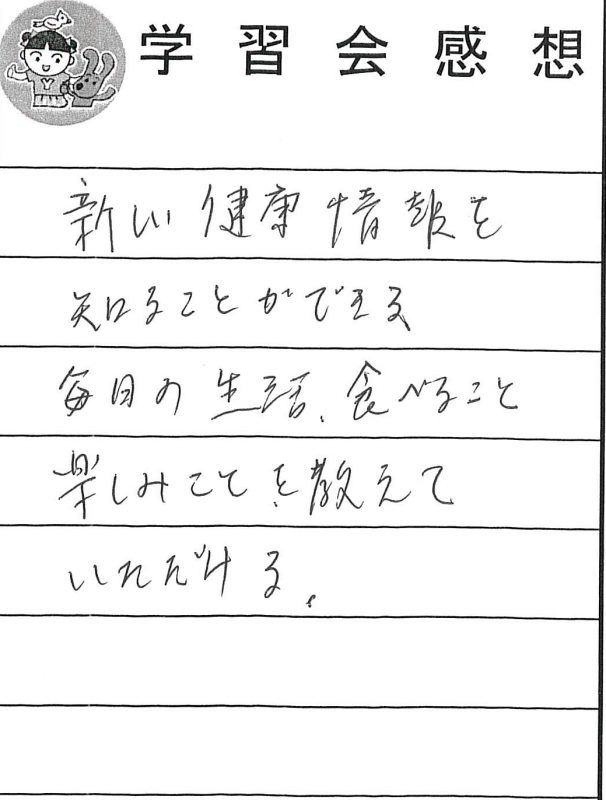 学習会感想
新しい健康情報を
知ることができる
毎日の生活、食べること
楽しみことを教えて
いただける。